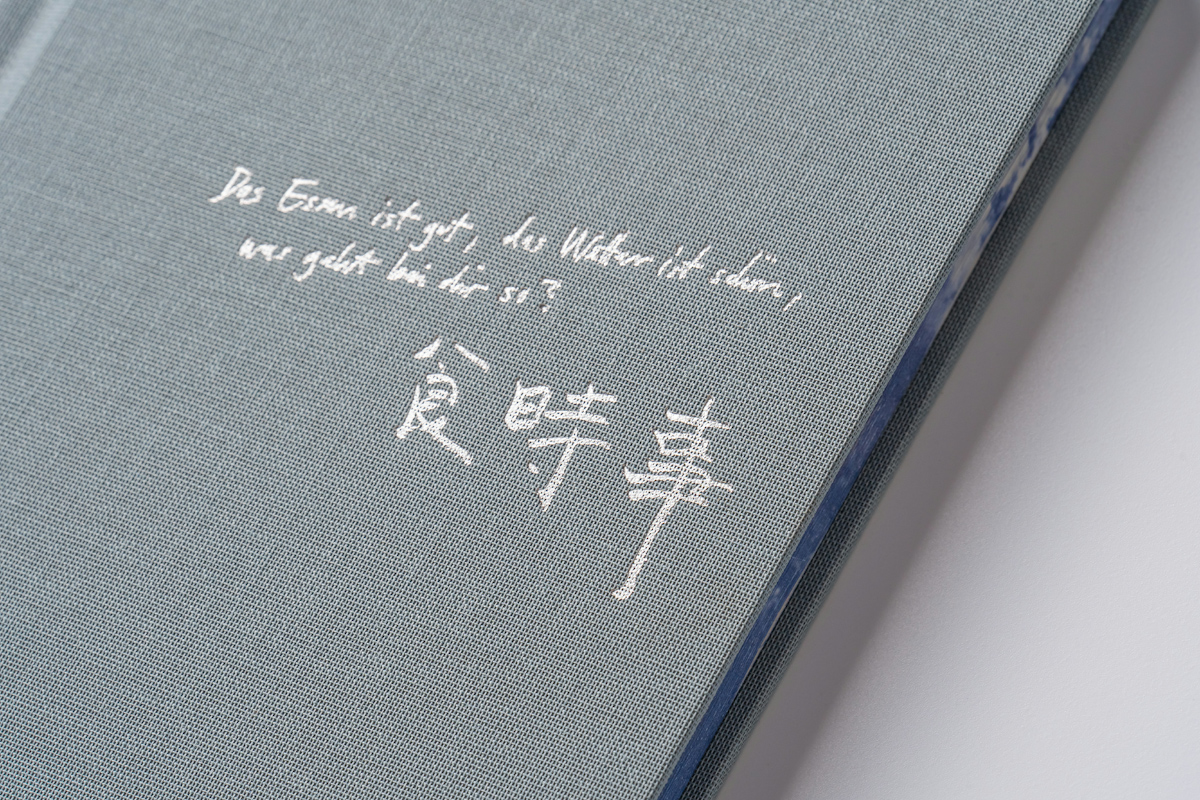 Das Essen ist gut, das Wetter ist schön,
was geht bei dir so?
食時事